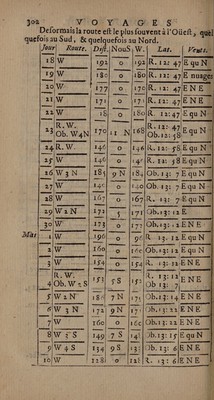 302 VOYAGES
Desormais la route est le plus souvent à l'Oüest, quel
quefois au Sud, & quelquefois au Nord.
Jour Route. Dist. NouS W. Lat. Vents.
18 W 192 0 192 R. 12: 47 E qu N
19 W 180 0 180 R. 12: 47 E nuages
20 W 177 0 170 R. 12: 47 E N E
21 W 171 0 171 R. 12: 47 E N E
22 W 18 0 180 R. 12: 47 E qu N
23 R. W. Ob. W4N 170 11 N 168 R. 12: 47 Ob. 12: 58 E qu N
24 R. W. 146 0 146 R. 12: 58 E qu N
25 W 146 0 146 R. 12: 58 E qu N
26 W 3 N 185 9 N 184 Ob. 14: 7 E qu N
27 W 140 0 140 Ob. 13: 7 E qu N
28 W 167 0 167 R. 13: 7 E qu N
29 W 2 N 171 5 171 Ob. 13: 12 E
30 W 173 0 171 Ob. 13: 12 E N E
Mai 1 W 196 0 196 R. 13. 12 E qu N
2 W 160 0 160 Ob. 13: 12 E qu N
3 W 154 0 154 R. 13: 12 E N E
4 R. W. Ob. W 2 S 153 5 S 153 R. 13: 12 Ob 13: 7 E N E
5 W 2 N 7 N Ob. 13: 14 E N E
6 W 3 N 172 9 N 171 Ob. 13: 22 E N E
7 W 160 0 160 Ob. 13: 22 E N E
8 W S 149 7 S Ob. 13: 15 E qu N
9 W 4 S 134 9 S Ob. 13: 6 E N E
10 W 128 0 R. 13: 6 E N E